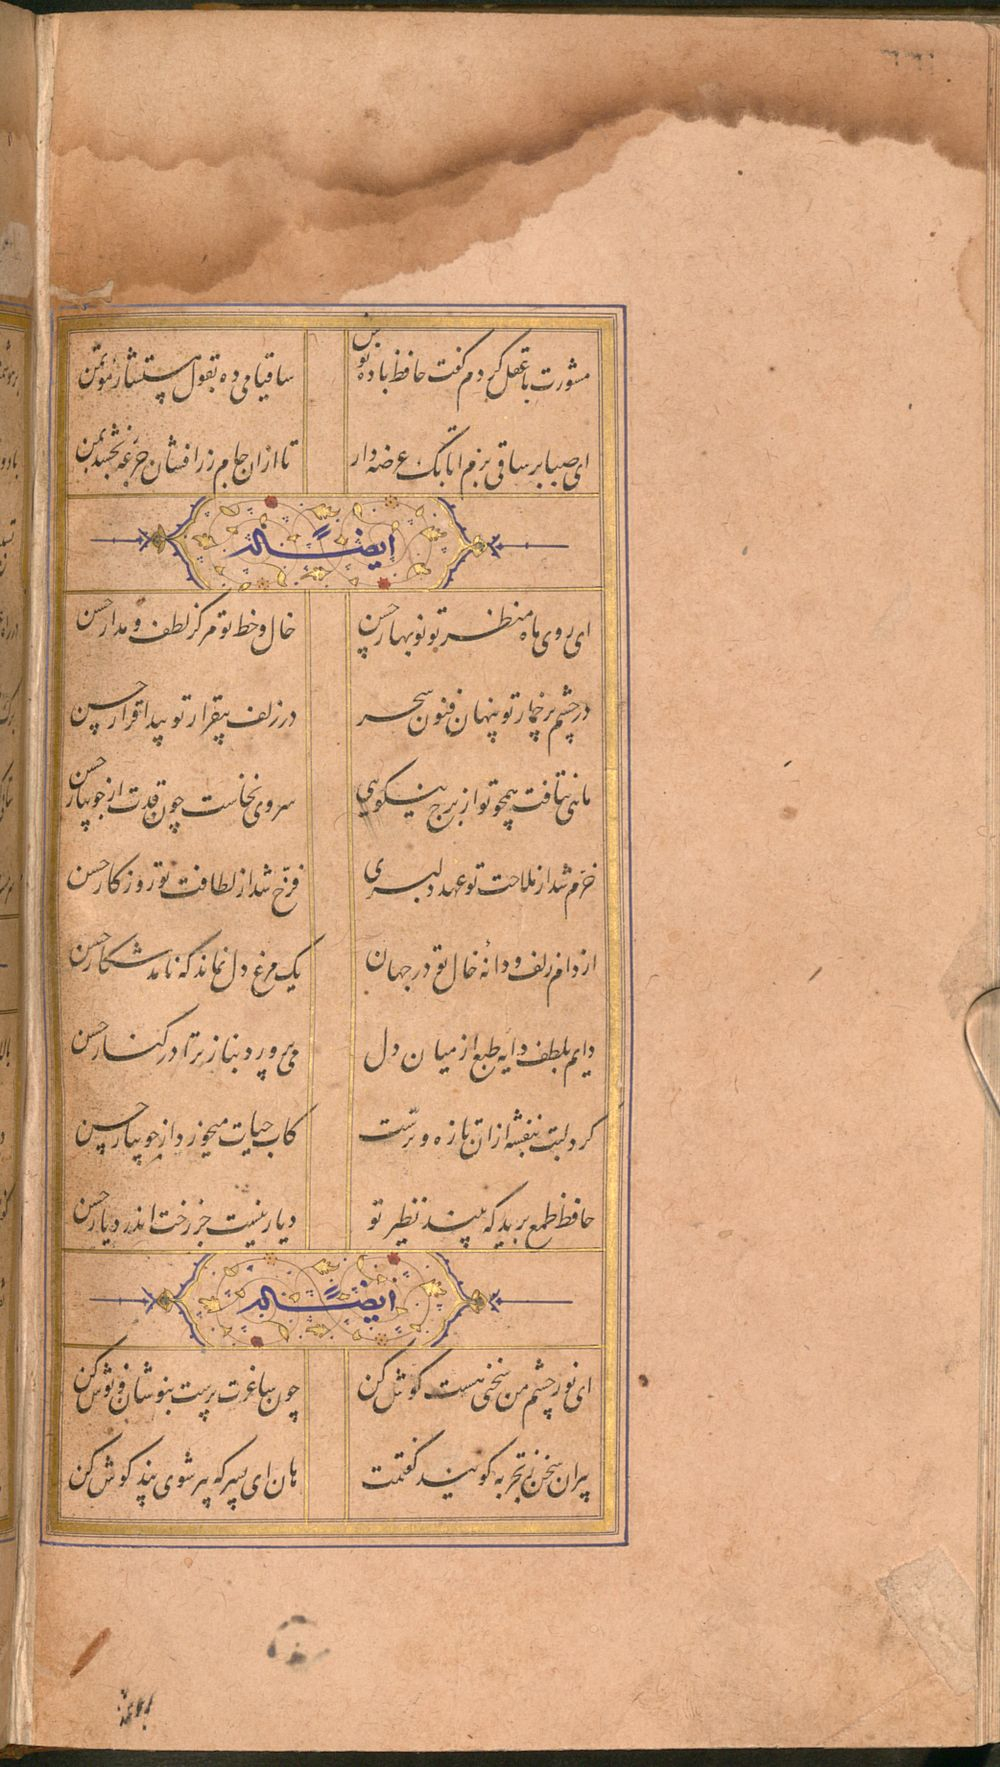 مشورت با عقل کردم گفت حافظ باده نوش ساقیا می ده بقول مستشار مؤتمن
ای صبا بر ساقی بزم اتابک عرضه دار تا از آن جام زرافشان جرعه بخشد بمن
ایضاً له
ای روی ماه منظر تو نوبهار حسن خال و خط تو مرکز لطف و مدار حسن
در چشم پرخمار تو پنهان فنون سحر در زلف بیقرار تو پیدا قرار حسن
ماهی نتافت همچو تو از برج نیکویی سروی نخاست چون قدت از جویبار حسن
خرّم شد از ملاحت تو عهد دلبری فرّخ شد از لطافت تو روزکار حسن
از دام زلف و دانهٔ خال تو در جهان یک مرغ دل نماند که نامد شکار حسن
دایم بلطف دایه طبع از میان دل می پرورد بناز ترا در کنار حسن
کرد لبت بنفشه از آن تازه و ترست کاب حیات میخورد از جویبار حسن
حافظ طمع برید که بیند نظیر تو دیار نیست جز رخت اندر دیار حسن
ایضاً له
ای نور چشم من سخنی هست کوش کن چون ساغرت پرست بنوشان و نوش کن
پیران سخن ز تجربه کویند کفتمت هان ای پسر که پیر شوی پند کوش کن